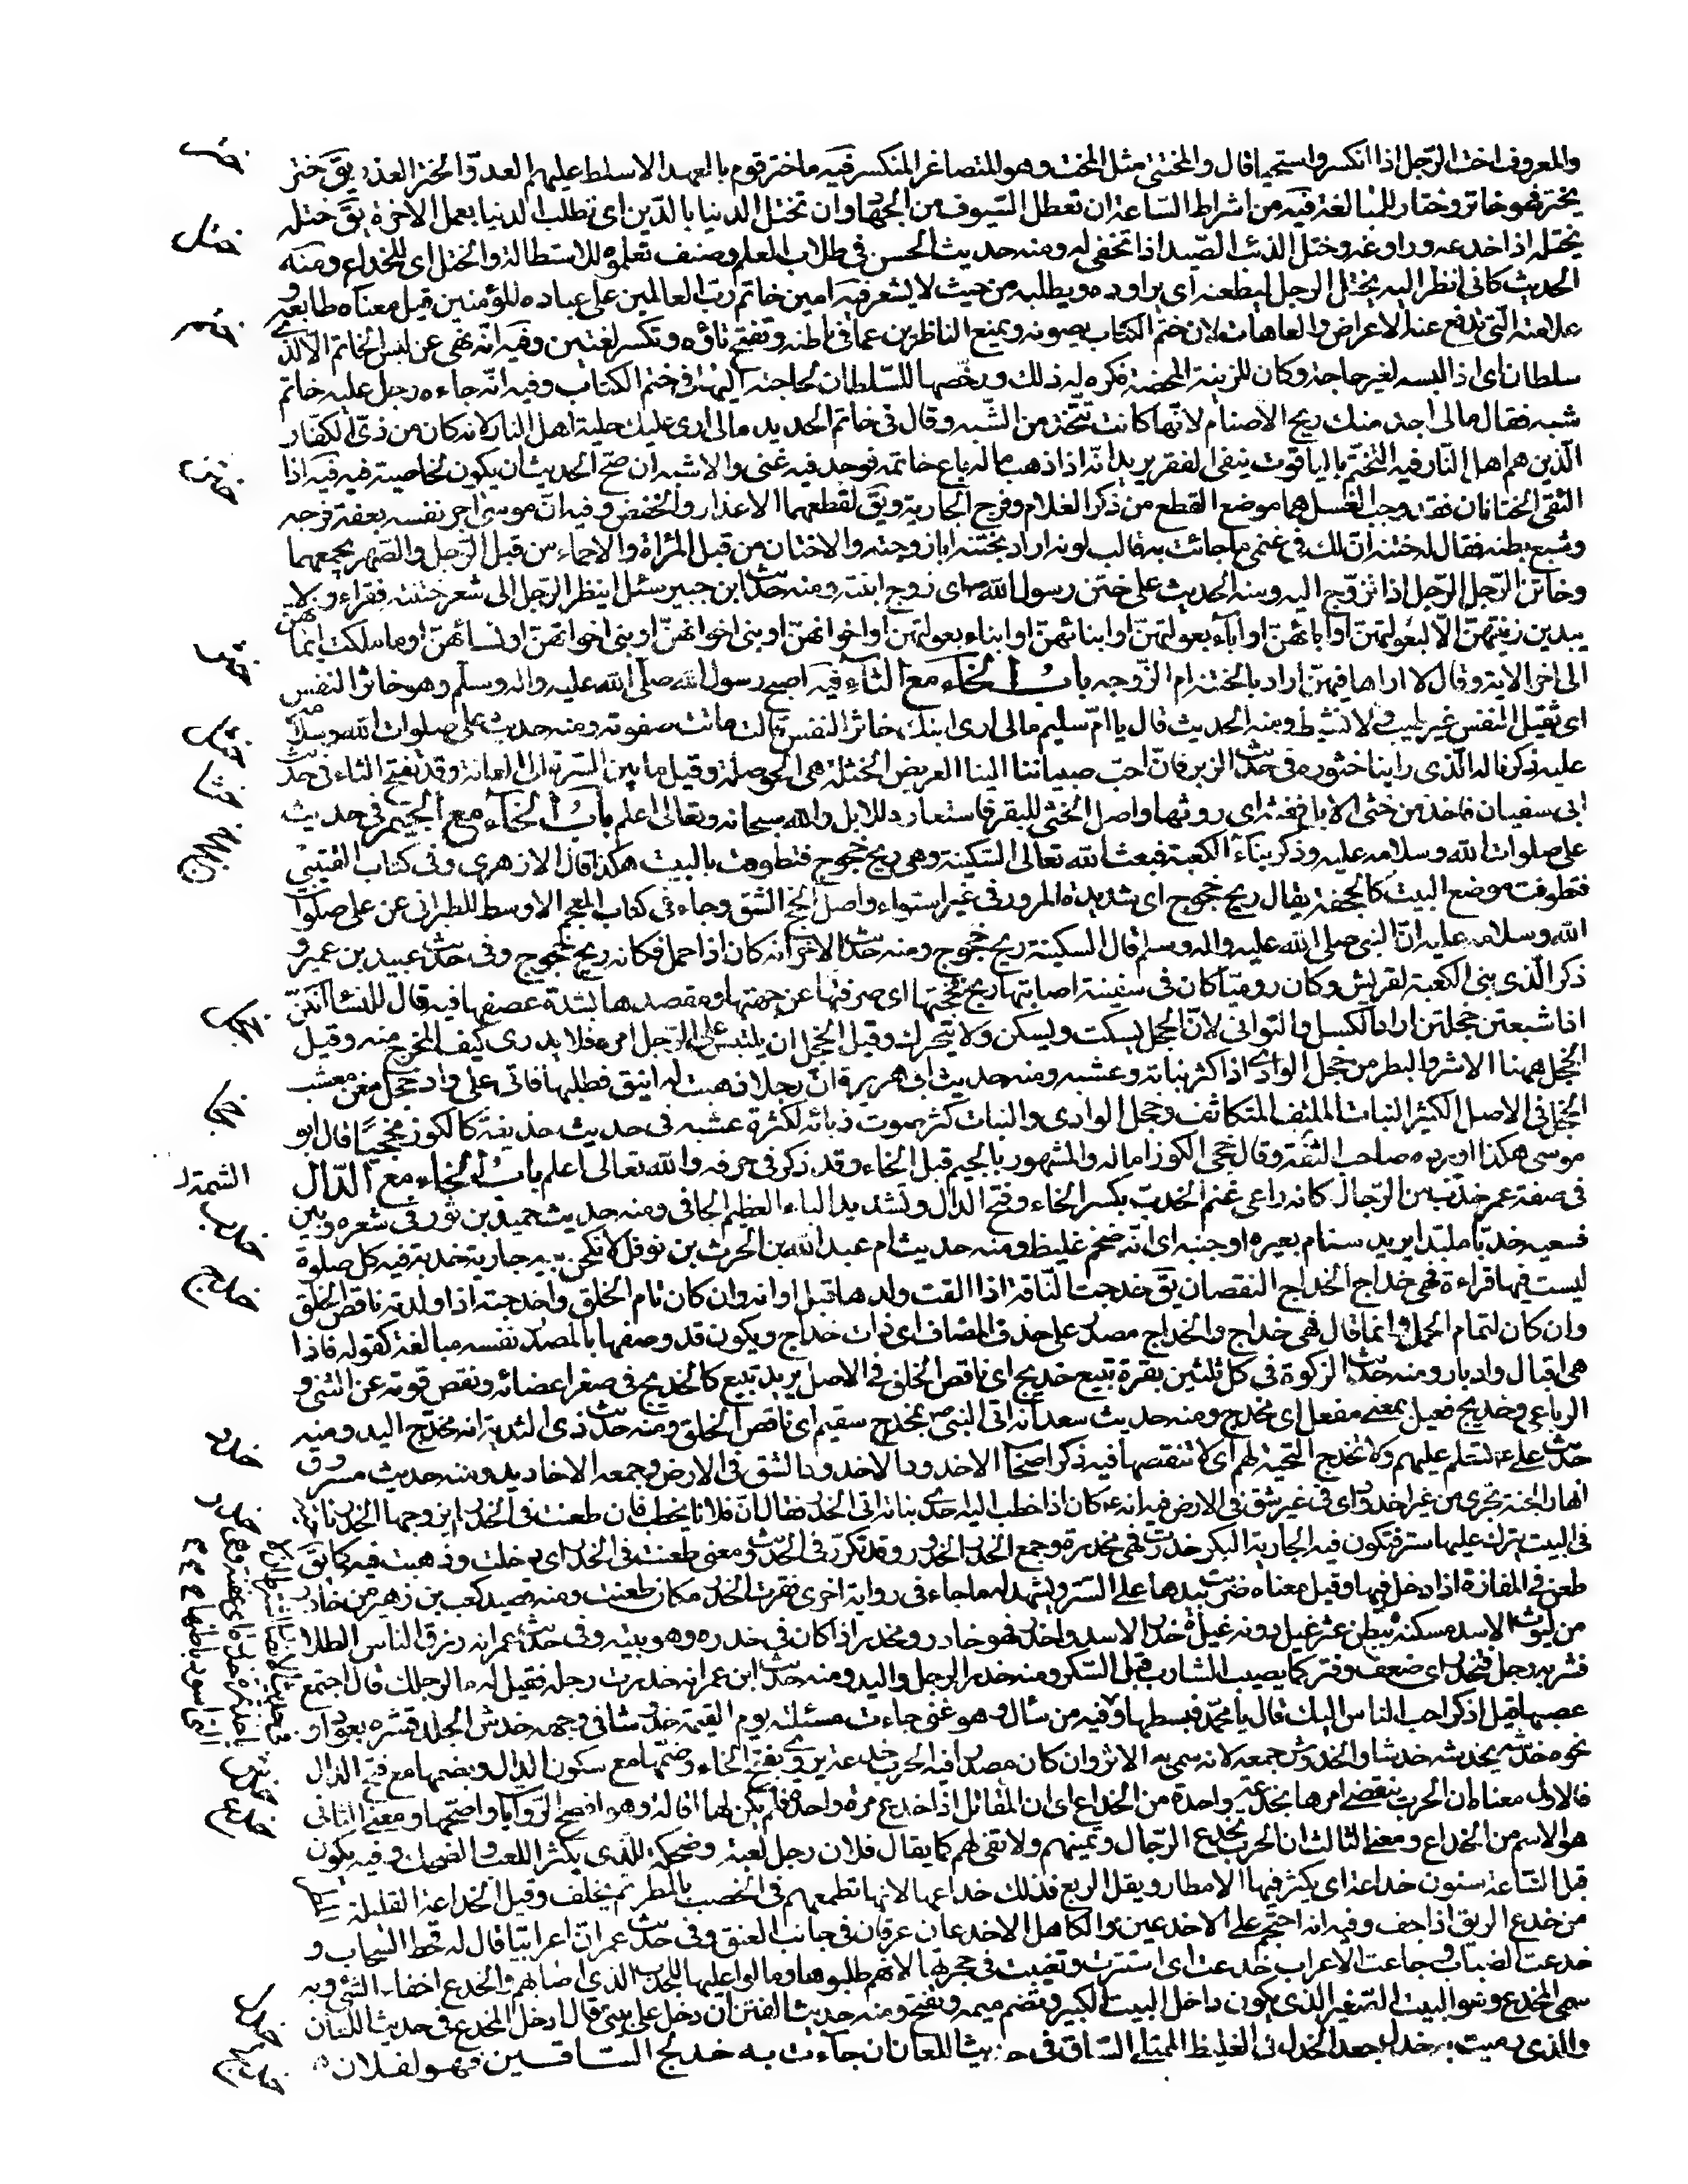 والمعروف اخت الرّجل اذا انكسر واستحيا قال والمختتى مثل المخت وهو المتصاغر المنكسر فيه ما ختر قوم بالعهد الا سلط عليهم العدوّ الختر الغدر يق ختر
يختر فهو خاتر وختار للمبالغة فيه من اشراط السّاعة ان تعطل السّيوف من الجهاد وان تختل الدنيا بالدّين اى تطلب الدنيا بعمل الآخرة يق ختله
يختله اذا خدعه وراوغه وختل الذئب الصّيد اذا تخفى له ومنه حديث الحسن فى طلاب العلم وصنف تعلموه للاستطالة والختل اى للخداع ومنه
الحديث كانى انظر اليه يختل الرجل ليطعنه اى يراوده ويطلبه من حيث لا يشعر فيه امين خاتم ربّ العالمين على عباده المؤمنين قيل معناه طابعه و
علامته الّتى تدفع عنهم الاعراض والعاهات لان ختم الكتاب يصونه ويمنع الناظرين عما فى باطنه وتفتح تاؤه وتكسر لغتين وفيه انّه نهى عن لبس الخاتم الا لذى
سلطان اى اذا لبسه لغير حاجة وكان للزينة المحضة فكره له ذلك ورخّصها للسّلطان لحاجته اليها فى ختم الكتاب وفيه انّه جاءه رجل عليه خاتم
شبه فقال مالى اجد منك ريح الاصنام لانّها كانت تتّخذ من الشّبه وقال فى خاتم الحديد مالى ارى عليك حلية اهل النار لانه كان من زىّ الكفّار
الّذين هم اهل النّار فيه التختّم بالياقوت ينفى الفقر يريد انّه اذا ذهب ماله باع خاتمه فوجد فيه غنى والاشبه ان صحّ الحديث ان يكون لخاصية فيه فيه اذا
التقى الختانان فقد وجب الغسل هما موضع القطع من ذكر الغلام وفرج الجارية ويق لقطعهما الاعذار والخفض وفيه انّ موسى اجر نفسه بعفة فرجه
وشبع بطنه فقال له ختنه انّ لك فى غنمى ما جائت به قالب لون اراد بختنه ابا زوجته والاختان من قبل المرأة والاحماء من قبل الرّجل والصّهر يجمعهما
وخاتن الرّجل الرّجل اذا تزوّج اليه ومنه الحديث علىّ ختن رسول الله ص اى زوج ابنته ومنه حديث ابن جبير سئل اينظر الرّجل الى شعر ختنته فقراء ولا
يبدين زينتهنّ الّا لبعولتهنّ او آبائهنّ او آباء بعولتهنّ او ابنائهنّ او ابناء بعولتهنّ او اخوانهنّ او بنى اخوانهنّ او بنى اخواتهنّ او نسائهنّ او ما ملكت ايمانهنّ
الى اخر الاية وقال لا اراها فيهنّ اراد بالختنه ام الزّوجه باب الخاء مع الثاء فيه اصبح رسول الله صلى الله عليه واله وسلم وهو خاثر النفس
اى ثقيل النفس غير طيب ولا نشيط ومنه الحديث قال يا امّ سليم مالى ارى ابنك خاثر النفس قالت ماتت صعوته ومنه حديث على صلوات الله وسلامه
عليه ذكرنا له الّذى راينا خثوره فى حديث الزبرقان احبّ صبياننا الينا العريض الخثلة هى الحوصلة وقيل ما بين السّرة الى العانة وقد تفتح الثاء فى حديث
ابى سفيان فاخذ من خثى الابل ففته اى روثها واصل الخثى للبقر فاستعاره للابل والله سبحانه وتعالى اعلم باب الخاء مع الجيم فى حديث
على صلوات الله وسلامه عليه وذكر بناء الكعبة فبعث الله تعالى السّكينة وهى ريح خجوج فتطوقت بالبيت هكذا قال الازهرى وفى كتاب القتيبى
فتطوقت موضع البيت كالحجفة يقال ريح خجوج اى شديدة المرور فى غير استواء واصل الخج الشق وجاء فى كتاب المعجم الاوسط للطبرانى عن على صلوات
الله وسلامه عليه انّ النبى صلى الله عليه واله وسلم قال السكينة ريح خجوج ومنه حديث الاخر انه كان اذا حمل فكانه ريح خجوج وفى حديث عبيد بن عمير و
ذكر الّذى بنى الكعبة لقريش وكان روميّا كان فى سفينة اصابتها ريح فخجتها اى صرفتها عن جهتها ومقصدها بشدة عصفها فيه قال للنساء انكنّ
اذا شبعتن خجلتن اراد الكسل والتوانى لانّ الخجل يسكت ويسكن ولا يتحرك وقيل الخجل ان يلتبس على الرّجل امره فلا يدرى كيف المخرج منه وقيل
الخجل ههنا الاشر والبطر من خجل الوادى اذا كثر نباته وعشبه ومنه حديث ابى هريرة انّ رجلا ذهبت له اينق فطلبها فاتى على واد خجل مغن معشب
الخجل فى الاصل الكثير النبات الملتف المتكاثف وخجل الوادى والنبات كثر صوت ذبابه لكثرة عشبه فى حديث حذيفة كالكوز مخجيّا قال ابو
موسى هكذا اورده صاحب التتمة وقال خجى الكوز اماله والمشهور بالجيم قبل الخاء وقد ذكر فى حرفه والله تعالى اعلم باب الخاء مع الدّال
فى صفة عمر خدبّ من الرّجال كانه راعى غنم الخدبّ بكسر الخاء وفتح الدال وتشديد الباء العظيم الجافى ومنه حديث حميد بن ثور فى شعره وبين
نسعيه خدبّا ملبّدا يريد سنام بعيره او جنبه اى انّه ضخم غليظ ومنه حديث ام عبد الله بن الحرث بن نوفل لانكحن ببه جارية خدبة فيه كل صلوة
ليست فيها قراءة فهى خداج الخداج النقصان يق خدجت النّاقة اذا القت ولدها قبل اوانه وان كان تام الخلق واخدجته اذا ولدته ناقص الخلق
وان كان لتمام الحمل وانما قال فهى خداج والخداج مصدر على حذف المضاف اى ذات خداج ويكون قد وصفها بالمصدر نفسه مبالغة كقوله فاذا
هى اقبال وادبار ومنه حديث الزكوة فى كل ثلثين بقرة تبيع خديج اى ناقص الخلق فى الاصل يريد تبيع كالخديج فى صغر اعضائه ونقص قوته عن الثنى و
الرباعى وخديج فعيل بمعنى مفعل اى مخدج ومنه حديث سعد انه اتى النبى ص بمخدج سقيم اى ناقص الخلق ومنه حديث ذى الثدية انه مخدّج اليد ومنه
حديث على ع تسلم عليهم ولا تخدج التحية لهم اى لا تنقصها فيه ذكر اصحاب الاخدود الاخدود الشق فى الارض وجمعه الاخاديد ومنه حديث مسروق
انهار الجنة تجرى من غير اخدود اى فى غير شق فى الارض فيه انه ع كان اذا خطب اليه احدى بناته اتى الخدر فقال انّ فلانا يخطب فان طعنت فى الخدر لم يزوجها الخدر ناحية
فى البيت يترك عليها ستر فتكون فيه الجارية البكر خدرت فهى مخدرة وجمع الخدر الخدور وقد تكرّر فى الحديث ومعنى طعنت فى الخدر اى دخلت وذهبت فيه كما يق
طعن فى المفازة اذا دخل فيها وقيل معناه ضربت بيدها على السّتر ويشهد له ما جاء فى رواية اخرى نقرت الخدر مكان طعنت ومنه قصيد كعب بن زهير من خادر
من ليوث الاسد مسكنه ببطن عثر غيل دونه غيل خدر الاسد واخدر فهو خادر ومخدر اذا كان فى خدره وهو بيته وفى حديث عمر انه رزق الناس الطلا
فشربه رجل فتخدر اى ضعف وفتر كما يصيب الشارب قبل السّكر ومنه خدر الرجل واليد ومنه حديث ابن عمر انه خدرت رجله فقيل له ما لرجلك قال اجتمع
عصبها قيل اذكر احب الناس اليك قال يا محمّد فبسطها وفيه من سأل وهو غنى جاءت مسئلته يوم القيمة خدوشا فى وجهه خدش الجلد قشره بعود او
نحوه خدشه يخدشه خدشا والخدوش جمعه لانه سمى به الاثر وان كان مصدرا فيه الحرب خدعة يروى بفتح الخاء وضمّها مع سكون الدال وبضمها مع فتح الدال
فالاول معناه ان الحرب ينقضى امرها بخدعة واحدة من الخداع اى ان المقاتل اذا خدع مرة واحدة فلم يكن لها اقالة وهو افصح الرّوايا واصحّها ومعنى الثانى
هو الاسم من الخداع ومعنى الثالث ان الحرب تخدع الرّجال وتمنيهم ولا تفى لهم كما يقال فلان رجل لعبة وضحكة للذى يكثر اللعب والضحك وفيه يكون
قبل السّاعة سنون خداعة اى يكثر فيها الامطار ويقل الريع فذلك خداعها لانها تطمعهم فى الخصب بالمطر ثم يخلف وقيل الخداعة القليلة
من خدع الريق اذا جف وفيه انه احتجم على الاخدعين والكاهل الاخدعان عرقان فى جانب العنق وفى حديث عمر انّ اعرابيّا قال له قحط السّحاب و
خدعت الضباب وجاعت الاعراب خدعت اى استترت وتغيبت فى جحرتها لانهم طلبوها ومالوا عليها للجدب الذى اصابهم والخدع اخفاء الشئ وبه
سمى المخدع وهو البيت الصّغير الذى يكون داخل البيت الكبير وتضم ميمه وتفتح ومنه حديث الفتن ان دخل على بيتى قال ادخل المخدع فى حديث اللعان
والذى رميت به خدل جعد الخدل الغليظ الممتلى السّاق فى حديث اللعان ان جآءت به خدلج السّاقين فهو لفلان
ختل
ختم
ختن
خثر
خثل
خثا
خجل
خجا
خدب
خدج
خدد
خدر
خدش
خدع
خدل
خدلج